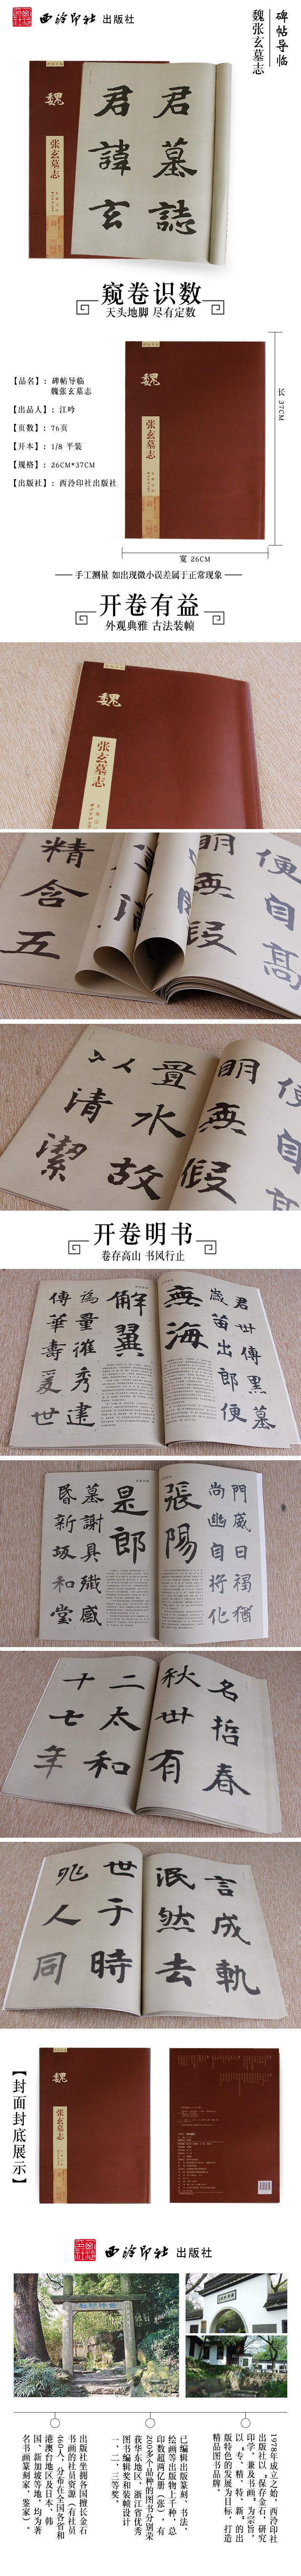 西泠印社 出版社
碑帖导临
魏张玄墓志
魏
张玄墓志
君墓誌
君諱玄
窥卷识数
天头地脚 尽有定数
【品名】：碑帖导临
魏张玄墓志
【出品人】：江吟
【页数】：76页
【开本】：1/8 平装
【规格】：26CM*37CM
【出版社】：西泠印社出版社
魏
张玄墓志
长 37CM
宽 26CM
手工测量 如出现微小误差属于正常现象
开卷有益
外观典雅 古法装帧
魏
张玄墓志
便自高
明無段
精含五
便自
明無假
置水故
以清潔
开卷明书
卷存高山 书风行止
君世傳黑墓
歲笛出郎便
無海
解翼
為量摧秀建
傳華壽爰世
門威日褐猶
尚幽自将化
張陽
是郎
墓謝具徽感
昏新坂和堂
名哲春
秋世有
二太和
十七年
言成軌
泯然去
世于時
兆人同
【封面封底展示】
魏
张玄墓志
西泠印社 出版社
1978年成立之始，西泠印社
出版社以“保存金石，研究
印学，兼及书画”为宗旨，
以“专、精、特、新”的出
版特色的发展为目标，打造
精品图书品牌。
已编辑出版篆刻、书法、
绘画等出版物上千种，总
印数超两亿册（张），有
200多个品种的图书分别荣
获华东地区、浙江省优秀
图书编辑奖和装帧设计
一、二、三等奖。
出版社坐拥各国擅长金石
书画的社员资源（有社员
460人，分布在全国各省和
港澳台地区及日本、韩
国、新加坡等地，均为著
名书画篆刻家、鉴家）。